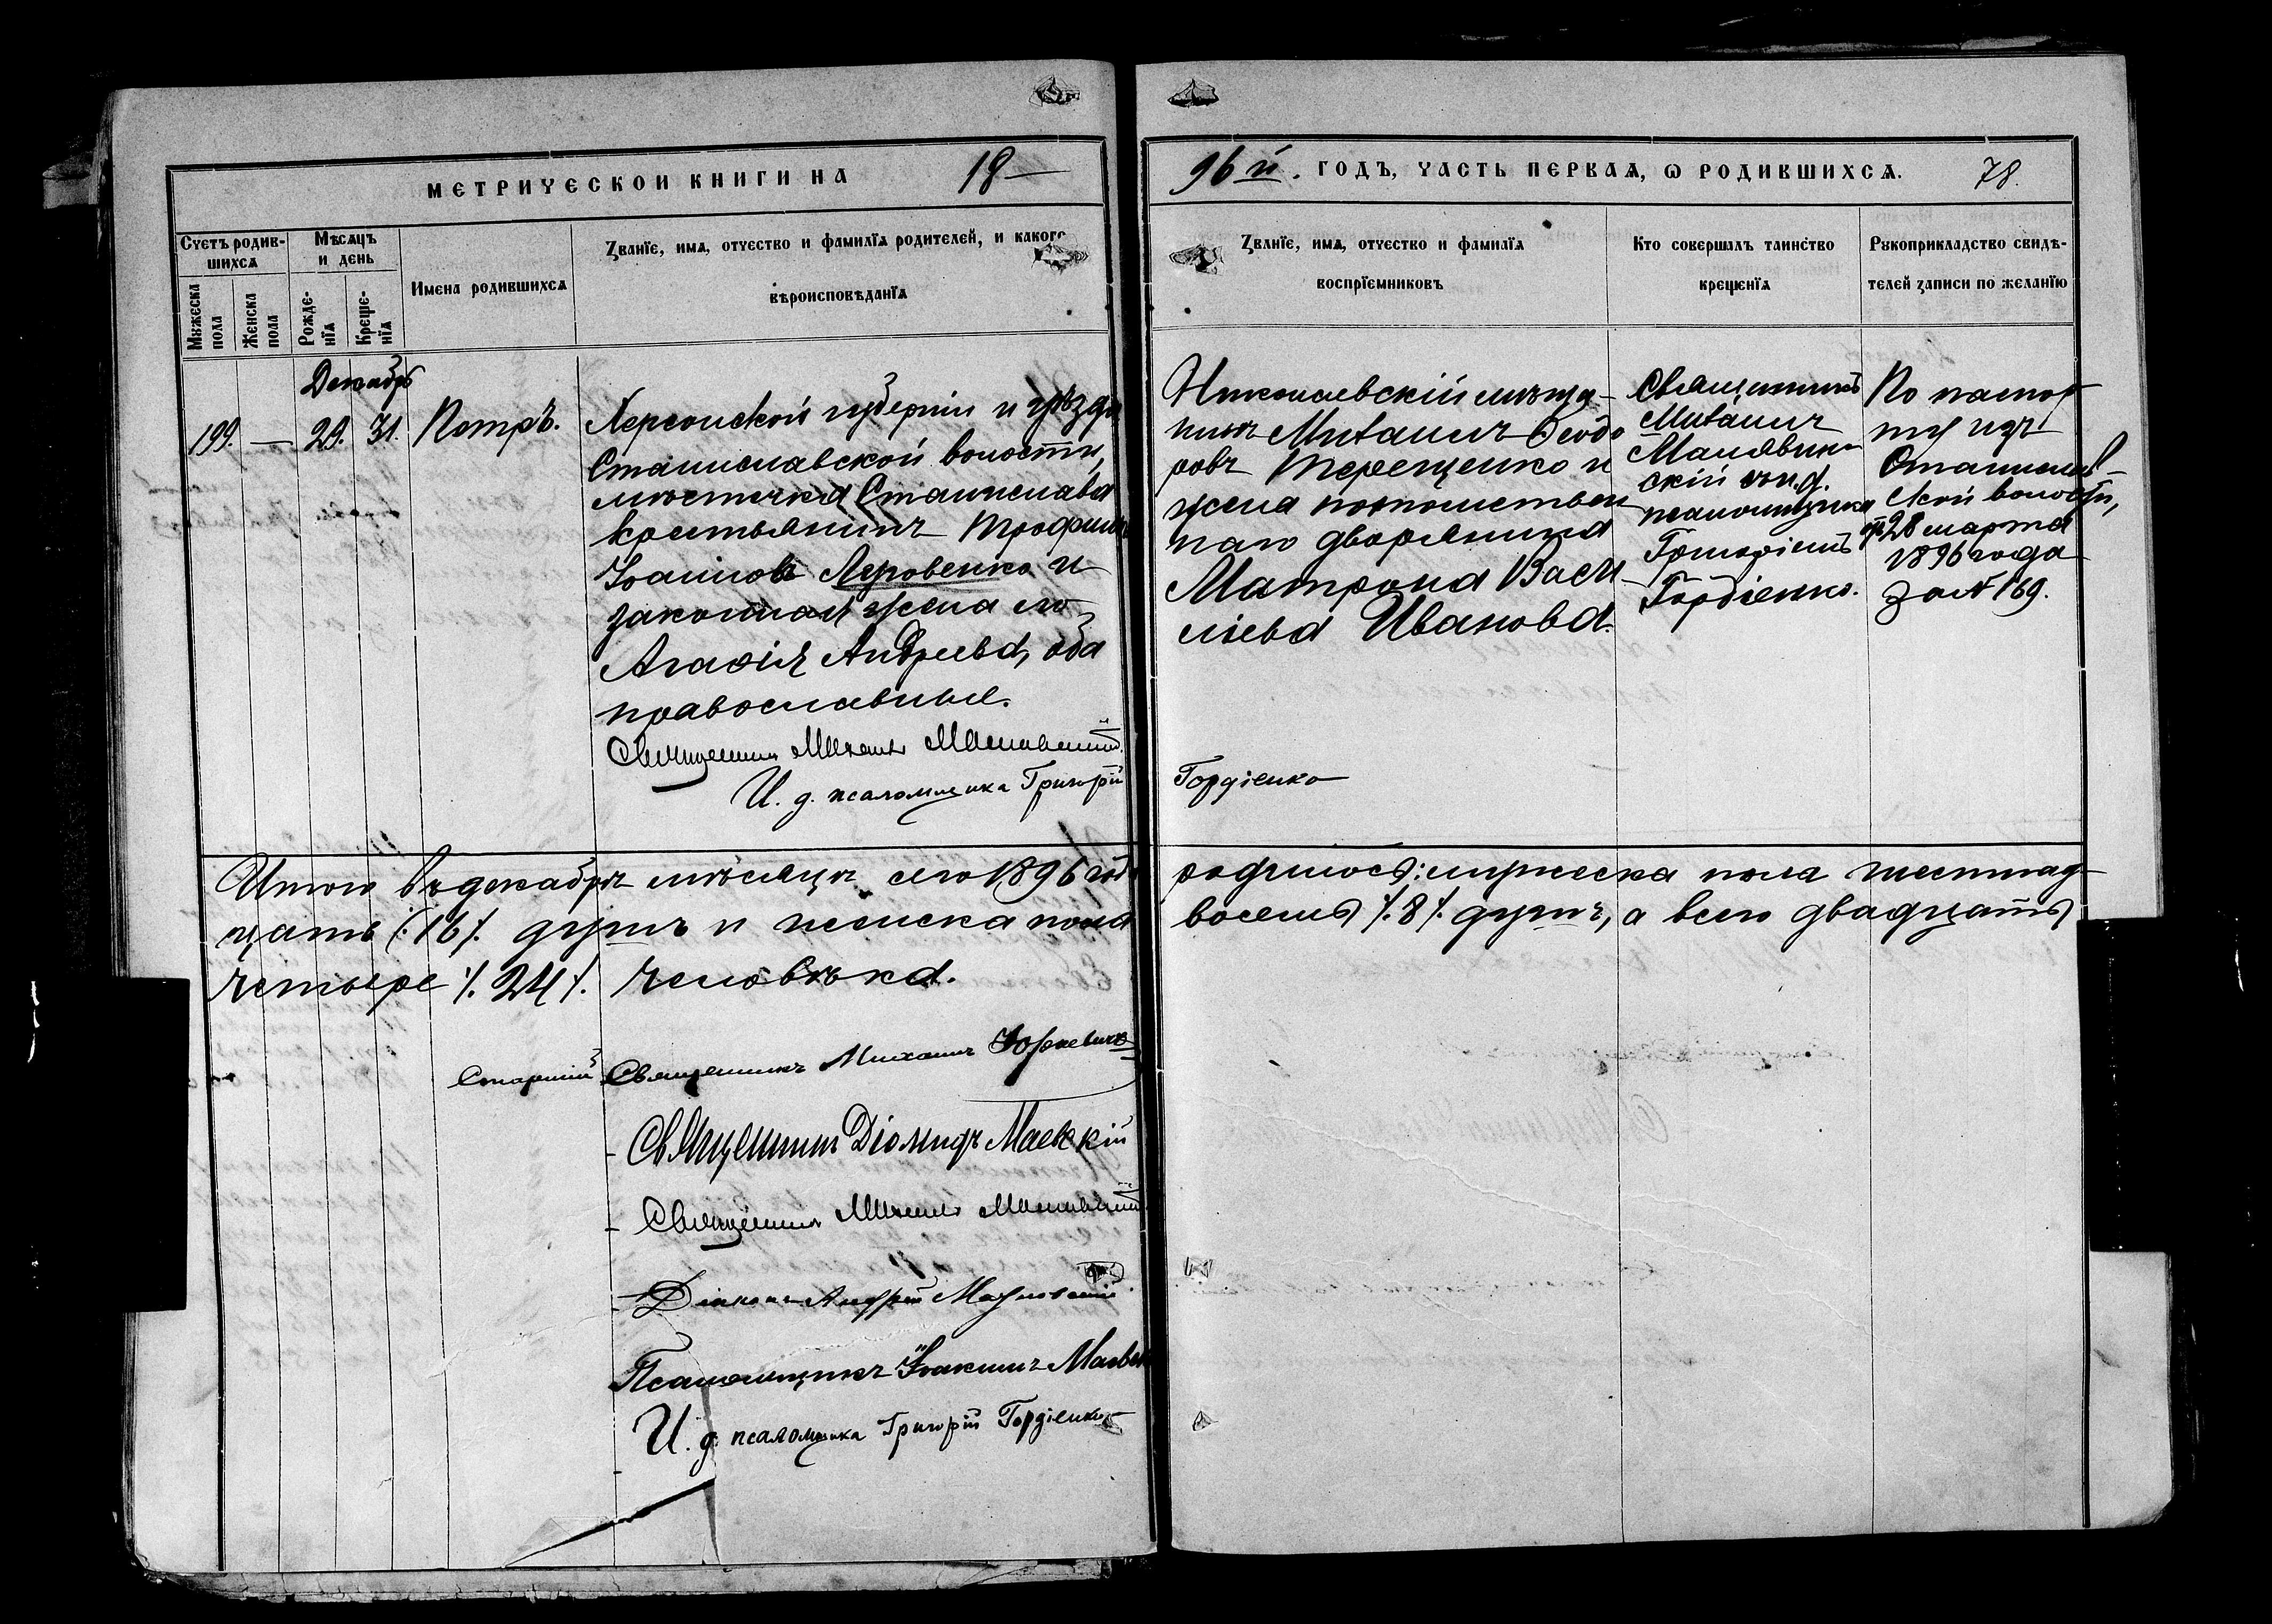 МЕТРИЧЕСКОЙ КНИГИ НА 18—
96й. ГОДЪ, ЧАСТЬ ПЕРВАЯ, Ѡ РОДИВШИХСЯ. 78.
Счетъ родив-
шихся
Мужеска
пола
Женска
пола
Мѣсяцъ
и день
Рожде-
нїя
Креще-
нїя
Имена родившихся
Званїе, имя, отчество и фамилїя родителей, и какого
вѣроисповѣданїя
Званїе, имя, отчество и фамилїя
воспрїемниковъ
Кто совершалъ таинство
крещенїя
Рукоприкладство свидѣ-
телей записи по желанїю
Декабрь
199. — 29. 31. Петръ.
Херсонской губерніи и уѣзда
Станиславской волости,
мѣстечка Станислава
крестьянинъ Трофимъ
Іоанновъ Яровенко и
законная жена его
Агаѳія Андреева, оба
православные.
Священникъ Михаилъ
И. д. псаломщика Григорій
Гордіенко
Николаевскій мѣща-
нинъ Михаилъ Ѳеодо
ровъ Терещенко и
жена потомствен
наго дворянина
Матрона Васи
ліева Иванова.
Священникъ
Михаилъ
скій и. д.
псаломщика
Григорій
Гордіенко.
По паспор
ту изъ
Станислав-
ской волости,
28 марта
1896 года
за № 169.
Итого въ декабрѣ мѣсяцѣ сего 1896 года
родилось: мужеска пола шестнад-
цать /:16/. душъ и женска пола
восемь /.8/. душъ, а всего двадцать
четыре /.24/. человѣка.
Старшій Священникъ Михаилъ Юркевичъ
Священникъ Діомидъ Маевскій
Священникъ Михаилъ
Діаконъ Андрей
Псаломщикъ Іоакимъ
И. д. псаломщика Григорій Гордіенко